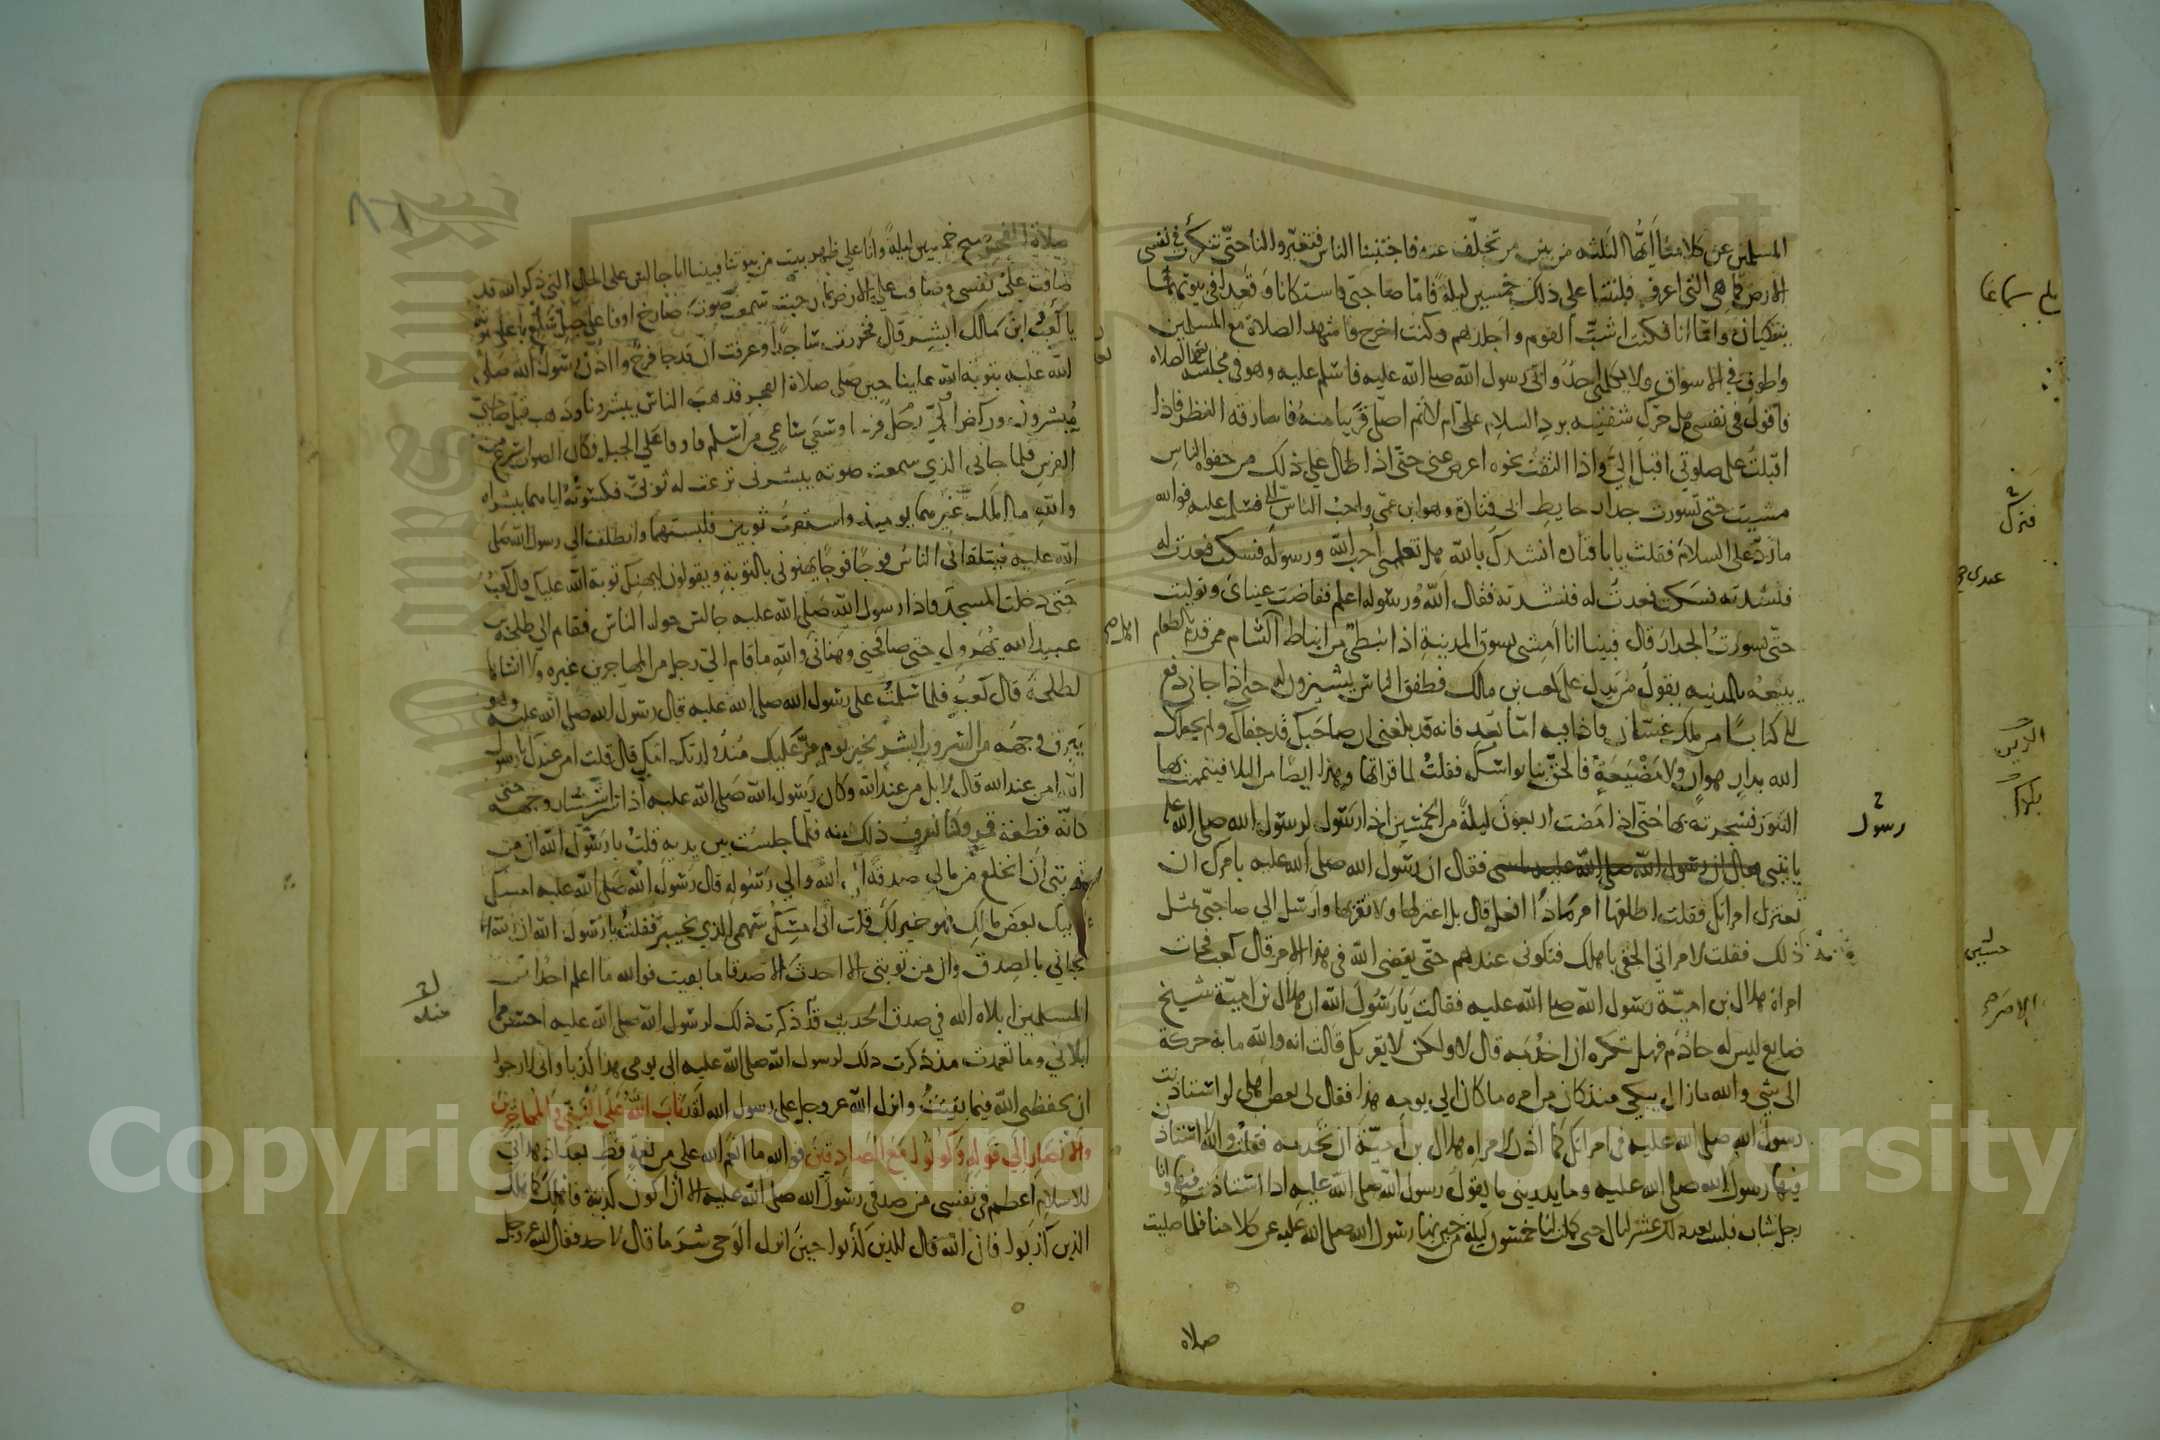 المسلمين عن كلامنا أيها الثلثة من بين من تخلف عنه فاجتنبنا الناس فتغيروا لنا حتى تنكرت في نفسي
الارض فما هي التي اعرف فلبثنا على ذلك خمسين ليلة فاما صاحبي فاستكانا وقعدا في بيوتهما
يبكيان واما انا فكنت اشب القوم واجلدهم وكنت اخرج فاشهد الصلاة مع المسلمين
واطوف في الاسواق ولا يكلمني احد واتي رسول الله صلى الله عليه فاسلم عليه وهو في مجلسه بعد الصلاه
فاقول في نفسي هل حرك شفتيه برد السلام علي ام لا ثم اصلي قريبا منه فاسارقه النظر فاذا
اقبلت على صلوتي اقبل الي واذا التفت نحوه اعرض عني حتى اذا طال علي ذلك من جفوه الناس
مشيت حتى تسورت جدار حايط ابي قتادة وهو ابن عمي واحب الناس الي فسلمت عليه فوالله
ما رد علي السلام فقلت يابا قتادة انشدك بالله هل تعلمني احب الله ورسوله فسكت فعدت له
فنشدته فسكت فعدت له فنشدته فقال الله ورسوله اعلم ففاضت عيناي وتوليت
حتى تسورت الجدار قال فبينا انا امشي بسوق المدينة اذا نبطي من انباط الشام ممن قدم بالطعام
يبيعه بالمدينه يقول من يدل على كعب بن مالك فطفق الناس يشيرون له حتى اذا جاني دفع
الي كتابا من ملك غسان فاذا فيه اما بعد فانه قد بلغني ان صاحبك قد جفاك ولم يجعلك
الله بدار هوان ولا مضيعة فالحق بنا نواسك فقلت لما قراتها وهذا ايضا من البلا فتيممت بها
التنور فسجرته بها حتى اذا مضت اربعون ليلة من الخمسين اذا رسول لرسول الله صلى الله عليه
ياتيني فقال ان رسول الله صلى الله عليه يامرك ان
تعتزل امراتك فقلت اطلقها ام ماذا افعل قال بل اعتزلها ولا تقربها وارسل الى صاحبي مثل
ذلك فقلت لامراتي الحقي باهلك فتكوني عندهم حتى يقضي الله في هذا الامر قال كعب فجات
امراة هلال بن امية رسول الله صلى الله عليه فقالت يا رسول الله ان هلال بن امية شيخ
ضايع ليس له خادم فهل تكره ان اخدمه قال لا ولكن لا يقربك قالت انه والله ما به حركة
الى شي والله ما زال يبكي منذ كان من امره ما كان الى يومه هذا فقال لي بعض اهلي لو استاذنت
رسول الله صلى الله عليه في امراتك كما اذن لامراة هلال بن امية ان تخدمه فقلت والله لا استاذن
فيها رسول الله صلى الله عليه وما يدريني ما يقول رسول الله صلى الله عليه اذا استاذنته فيها وانا
رجل شاب فلبثت بعد ذلك عشر ليال حتى كملت لنا خمسون ليلة من حين نهى رسول الله صلى الله عليه عن كلامنا فلما صليت
صلاه
رسول
صلاة الفجر صبح خمسين ليلة وانا على ظهر بيت من بيوتنا فبينا انا جالس على الحال التي ذكر الله قد
ضاقت علي نفسي وضاقت علي الارض بما رحبت سمعت صوت صارخ اوفا على جبل سلع باعلى صوته
يا كعب ابن مالك ابشر قال فخررت ساجدا وعرفت ان قد جا فرج واذن رسول الله صلى
الله عليه بتوبة الله علينا حين صلى صلاة الفجر فذهب الناس يبشروننا وذهب قبل صاحبي
مبشرون وركض الي رجل فرسا وسعى ساعي من اسلم فاوفا على الجبل فكان الصوت اسرع من
الفرس فلما جاني الذي سمعت صوته يبشرني نزعت له ثوبي فكسوته اياهما ببشراه
والله ما املك غيرهما يوميذ واستعرت ثوبين فلبستهما وانطلقت الى رسول الله صلى
الله عليه فيتلقاني الناس فوجا فوجا يهنوني بالتوبة ويقولون ليهنك توبة الله عليك قال كعب
حتى دخلت المسجد فاذا رسول الله صلى الله عليه جالس حوله الناس فقام الي طلحة بن
عبيد الله يهرول حتى صافحني وهناني والله ما قام الي رجل من المهاجرين غيره ولا انساها
لطلحة قال كعب فلما سلمت على رسول الله صلى الله عليه قال رسول الله صلى الله عليه وهو
يبرق وجهه من السرور ابشر بخير يوم مر عليك منذ ولدتك امك قال قلت امن عندك يا رسول
الله امن عند الله قال لا بل من عند الله وكان رسول الله صلى الله عليه اذا سر استنار وجهه حتى
كانه قطعة قمر وكنا نعرف ذلك منه فلما جلست بين يديه قلت يا رسول الله ان من
توبتي ان انخلع من مالي صدقة الى الله والى رسوله قال رسول الله صلى الله عليه امسك
عليك بعض مالك فهو خير لك قلت اني امسك سهمي الذي بخيبر فقلت يا رسول الله ان الله انما
نجاني بالصدق وان من توبتي الا احدث الا صدقا ما بقيت فوالله ما اعلم احدا من
المسلمين ابلاه الله في صدق الحديث قد ذكرت ذلك لرسول الله صلى الله عليه احسن مما
ابلاني وما تعمدت منذ ذكرت ذلك لرسول الله صلى الله عليه الى يومي هذا كذبا واني لارجوا
ان يحفظني الله فيما بقيت وانزل الله عز وجل على رسول الله لقد تاب الله على النبي والمهاجرين
والانصار الى قوله وكونوا مع الصادقين فوالله ما انعم الله علي من نعمة قط بعد اذ هداني
للاسلام اعظم في نفسي من صدقي رسول الله صلى الله عليه الا ان اكون كذبته فاهلك كما هلك
الذين كذبوا فان الله قال للذين كذبوا حين انزل الوحي شر ما قال لاحد فقال الله عز وجل
Copyright © King Saud University
King Saud University
1957